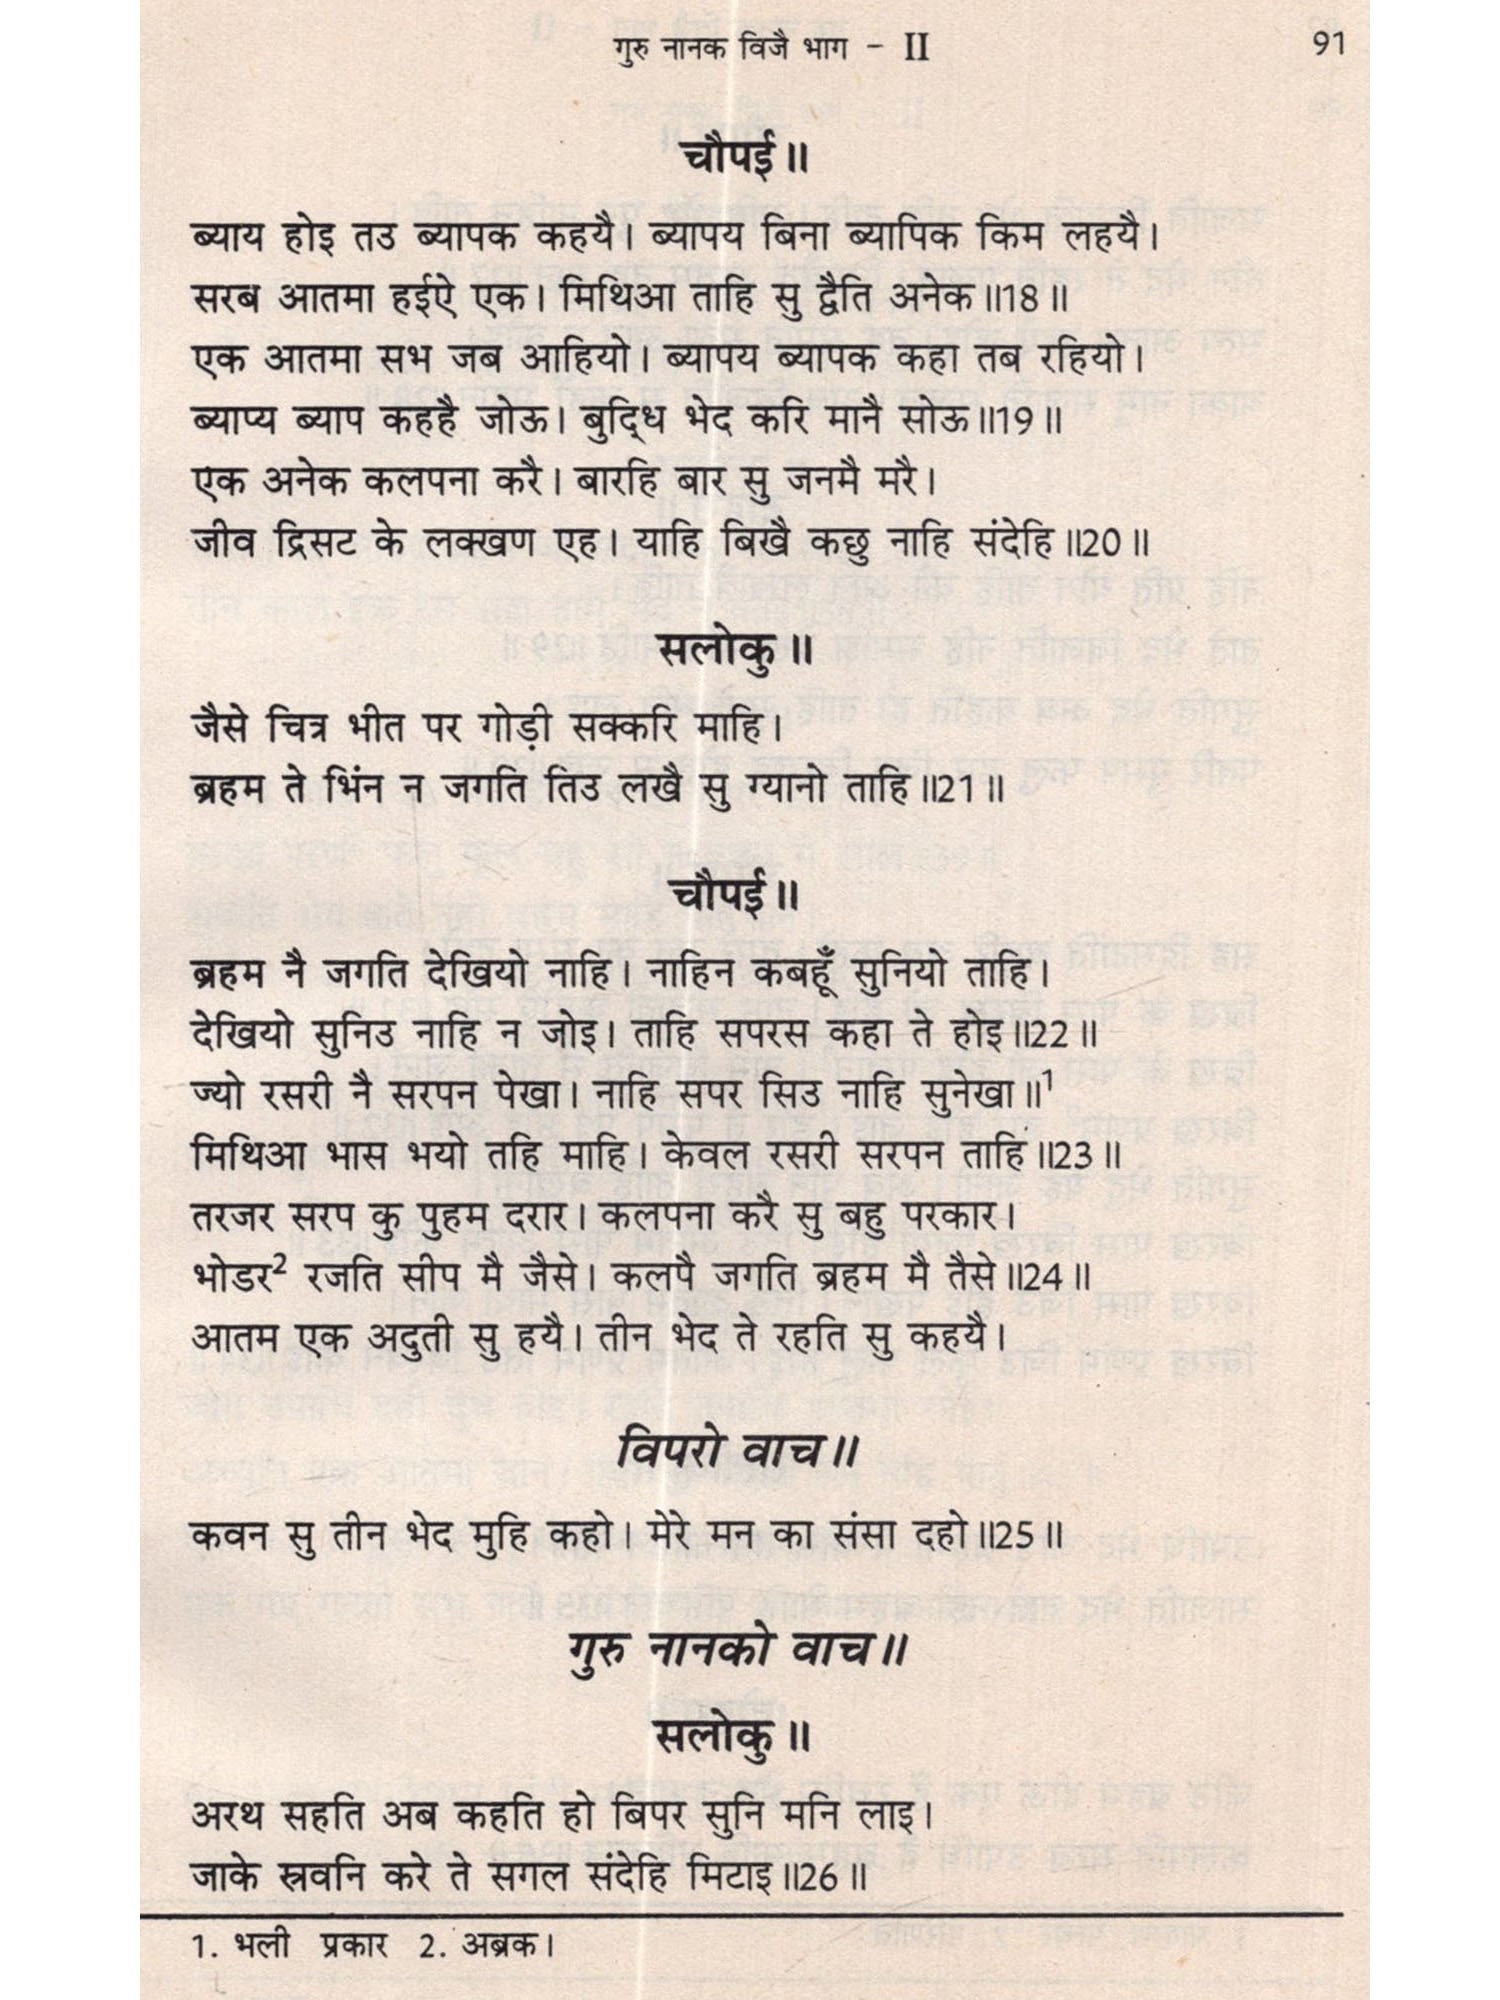 गुरु नानक विजै भाग - II 91
चौपई॥
ब्याय होइ तउ ब्यापक कहयै। ब्यापय बिना ब्यापिक किम लहयै।
सरब आतमा हईऐ एक। मिथिआ ताहि सु द्वैति अनेक॥18॥
एक आतमा सभ जब आहियो। ब्यापय ब्यापक कहा तब रहियो।
ब्याप्य ब्याप कहहै जोऊ। बुद्धि भेद करि मानै सोऊ॥19॥
एक अनेक कलपना करै। बारहि बार सु जनमै मरै।
जीव द्रिसट के लक्खण एह। याहि बिखै कछु नाहि संदेहि॥20॥
सलोकु॥
जैसे चित्र भीत पर गोड़ी सक्करि माहि।
ब्रहम ते भिंन न जगति तिउ लखै सु ग्यानो ताहि॥21॥
चौपई॥
ब्रहम नै जगति देखियो नाहि। नाहिन कबहूँ सुनियो ताहि।
देखियो सुनिउ नाहि न जोइ। ताहि सपरस कहा ते होइ॥22॥
ज्यो रसरी नै सरपन पेखा। नाहि सपर सिउ नाहि सुनेखा॥¹
मिथिआ भास भयो तहि माहि। केवल रसरी सरपन ताहि॥23॥
तरजर सरप कु पुहम दरार। कलपना करै सु बहु परकार।
भोडर² रजति सीप मै जैसे। कलपै जगति ब्रहम मै तैसे॥24॥
आतम एक अदुती सु हयै। तीन भेद ते रहति सु कहयै।
विपरो वाच॥
कवन सु तीन भेद मुहि कहो। मेरे मन का संसा दहो॥25॥
गुरु नानको वाच॥
सलोकु॥
अरथ सहति अब कहति हो बिपर सुनि मनि लाइ।
जाके स्रवनि करे ते सगल संदेहि मिटाइ॥26॥
1. भली प्रकार 2. अब्रक।